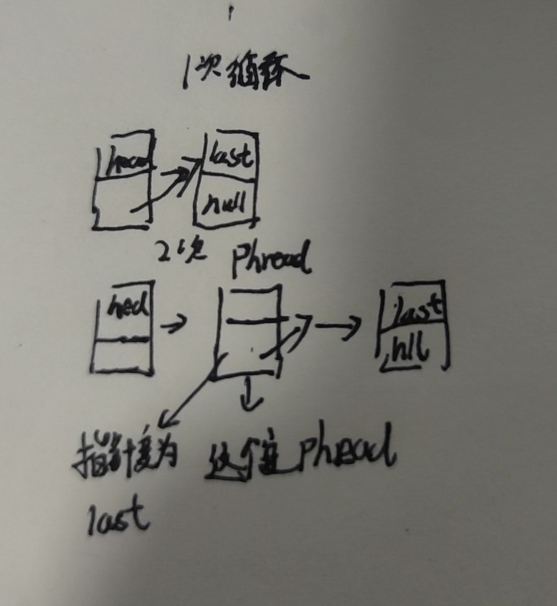 1次循环
head
last
null
2次
Phread
hed
last
nll
指针变为
last
这个是Phread